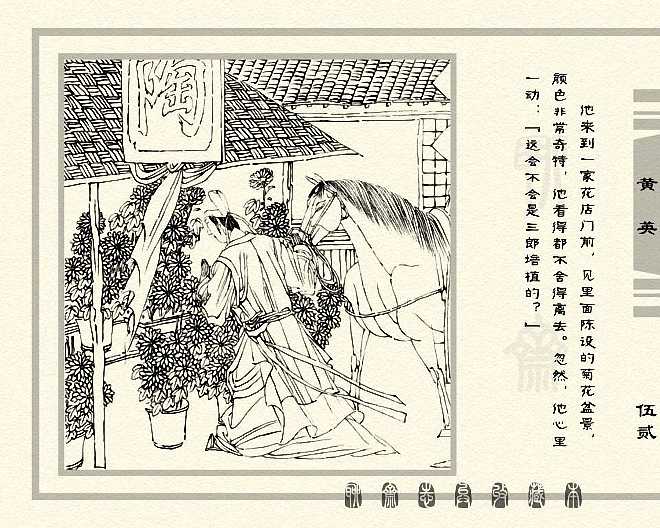 他来到一家花店门前，见里面陈设的菊花盆景，
颜色非常奇特，他看得都不舍得离去。忽然，他心里
一动：“这会不会是三郎培植的？”
黄英
伍贰
陶